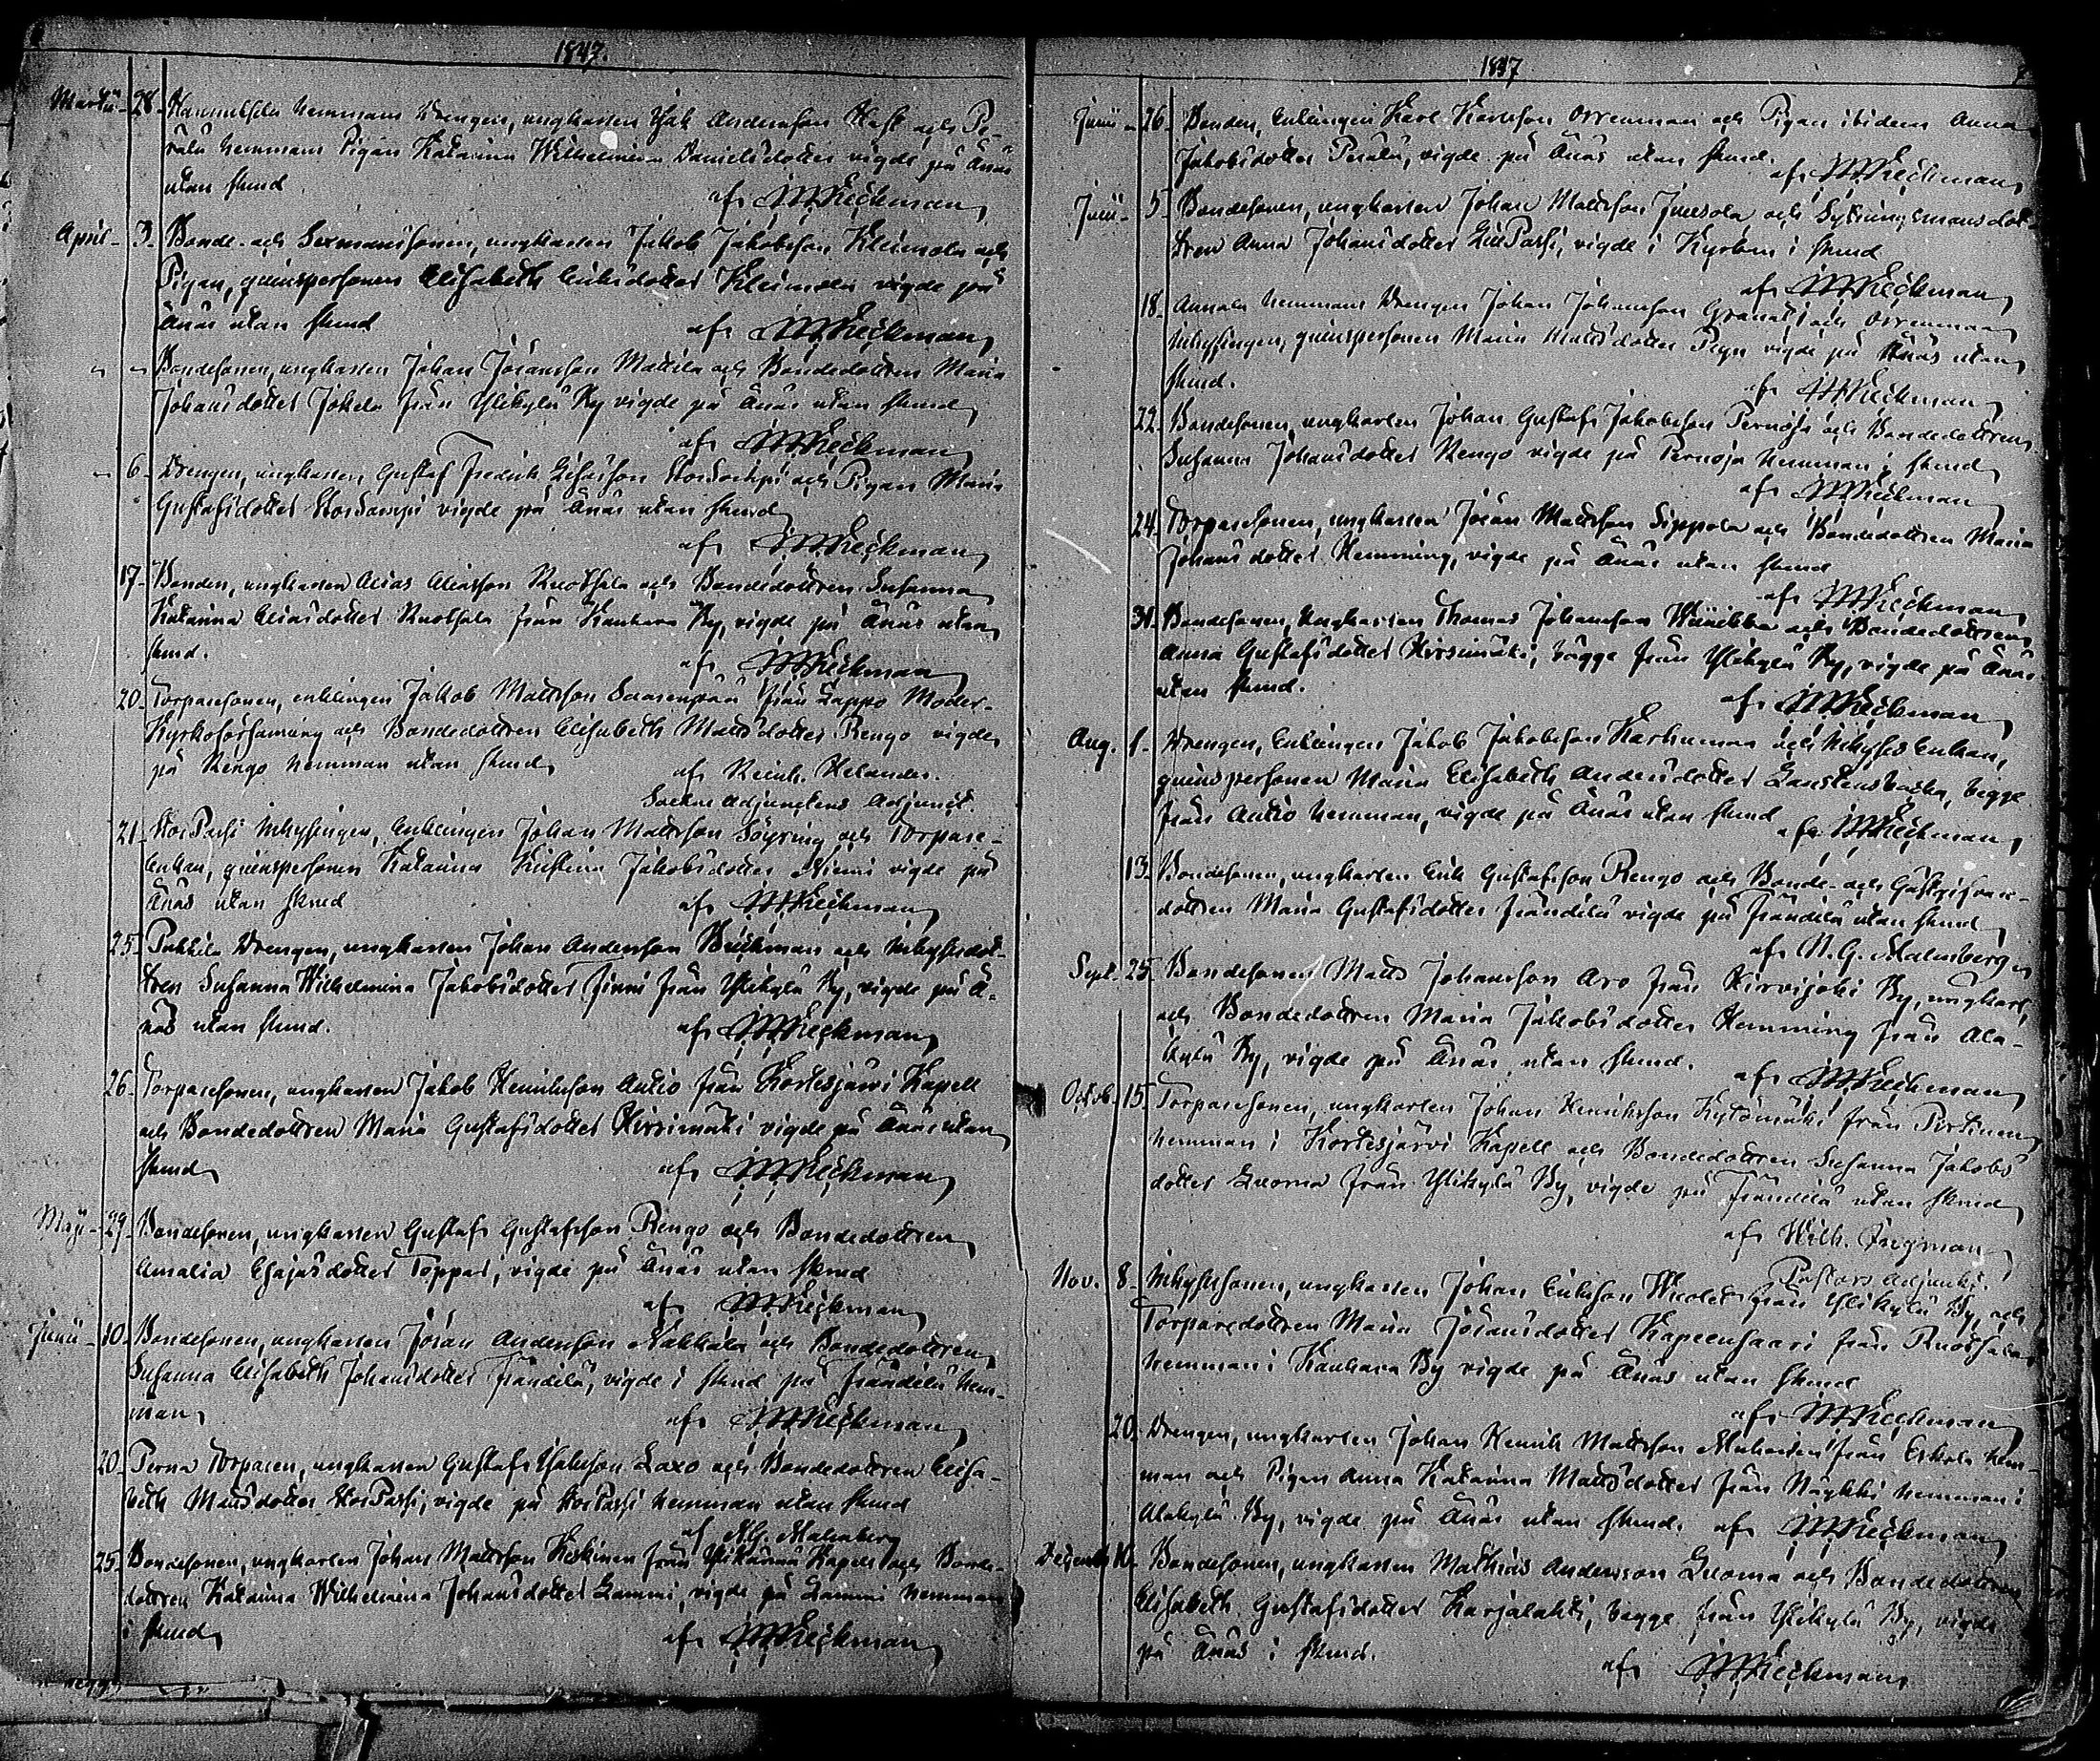 1847.
Martii 28. Hannuksela Hemmans Drengen, ungkarlen Isak Andersson Kast och Pe-
rälä Hemmans Pigan Katarina Wilhelmina Danielsdotter vigde på Änäs
utan skrud
af Keckman
April 3. Bonde- och Sexmanssonen, ungkarlen Jakob Jakobsson Kleimola och
Pigan, quinspersonen Elisabeth Eriksdotter Kleimola vigde på
Änäs utan skrud af Keckman
" " Bondesonen, ungkarlen Johan Jöransson Mattila och Bondedottren Maria
Johansdotter Jokela från Ylikylä By vigde på Änäs utan skrud
af Keckman
" 6. Drengen, ungkarlen Gustaf Fredrik Esaiasson och Pigan Maria
Gustafsdotter vigde på Änäs utan skrud
af Keckman
17. Bonden, ungkarlen Elias Eliasson Ruotsala och Bondedottren Susanna
Katarina Eliasdotter Ruotsala från Kauhava By, vigde på Änäs utan
skrud. af Keckman
20. Torparesonen, enklingen Jakob Mattsson Saarenpää från Lappo Moder-
Kyrkoförsamling och Bondedottren Elisabeth Mattsdotter Rengo vigde
på Rengo Hemman utan skrud af Reinh. Helander.
Sockne Adjunctens Adjunct.
21. StorPassi Inhysingen, Enklingen Johan Mattsson Söyring och Torpare-
Enkan, quinspersonen Katarina Kristina Jakobsdotter Niemi vigde på
Änäs utan skrud af Keckman
25. Pukkila Drengen, ungkarlen Johan Andersson Brickman och Inhysesdot-
tren Susanna Wilhelmina Jakobsdotter Finni från Ylikylä By, vigde på Ä-
näs utan skrud. af Keckman
26. Torparesonen, ungkarlen Jakob Henriksson Autio från Kortesjärvi Kapell
och Bondedottren Maria Gustafsdotter Kirsimäki vigde på Änäs utan
skrud af Keckman
Maji 29. Bondesonen, ungkarlen Gustaf Gustafsson Rengo och Bondedottren
Amalia Esajasdotter Toppar, vigde på Änäs utan skrud
af Keckman
Junii 10. Bondesonen, ungkarlen Jöran Andersson Nahkala och Bondedottren
Susanna Elisabeth Johansdotter Frändilä, vigde i skrud på Frändilä Hem-
man. af Keckman
20. Perna Torparen, ungkarlen Gustaf Isaksson Laxo och Bondedottren Elisa-
beth Mattsdotter StorPassi, vigde på StorPassi Hemman utan skrud
af N.G. Malmberg
25. Bondesonen, ungkarlen Johan Mattsson Keskinen från Ylihärmä Kapell och Bonde-
dottren Katarina Wilhelmina Johansdotter Lammi, vigde på Lammi Hemman
i skrud af Keckman
1847
Junii 26. Bonden, Enklingen Karl Karlsson Orrenmaa och Pigan ibidem Anna
Jakobsdotter Perälä, vigde på Änäs utan skrud.
af Keckman
Julii 5. Bondesonen, ungkarlen Johan Mattsson Jussola och Sytningsmansdot-
tren Anna Johansdotter LillPassi, vigde i Kyrkan i skrud
af Keckman
18. Annala Hemmans Drengen Johan Johansson Granat och Orrenmaa
Inhysingen, quinspersonen Maria Mattsdotter vigde på Änäs utan
skrud. af Keckman
22. Bondesonen, ungkarlen Johan Gustaf Jakobsson Pernaja och Bondedottren
Susanna Johansdotter Rengo vigde på Pernaja Hemman i skrud
af Keckman
24. Torparesonen, ungkarlen Jöran Mattsson Sippola och Bondedottren Maria
Johansdotter Hemming, vigde på Änäs utan skrud
af Keckman
31. Bondesonen, ungkarlen Thomas Johansson och Bondedottren
Anna Gustafsdotter Kirsimäki, bägge från Ylikylä By, vigde på Änäs
utan skrud. af Keckman
Aug. 1. Drengen, Enklingen Jakob Jakobsson Karhumaa och Inhyses Enkan,
quinspersonen Maria Elisabeth Andersdotter, begge
från Autio Hemman, vigde på Änäs utan skrud
af Keckman
13. Bondesonen, ungkarlen Erik Gustafsson Rengo och Bonde- och Gästgifvare-
dottren Maria Gustafsdotter Frändilä vigde på Frändilä utan skrud
af N.G. Malmberg
Sept. 25. Bondesonen Matts Johansson Aro från Kirvijoki By, ungkarl,
och Bondedottren Maria Jakobsdotter Hemming från Ala-
kylä By, vigde på Änäs utan skrud.
af Keckman
Octob. 15. Torparesonen, ungkarlen Johan Henriksson Kytömäki från Pirtinen
Hemman i Kortesjärvi Kapell och Bondedottren Susanna Jakobs-
dotter Luoma från Ylikylä By, vigde på Frändilä utan skrud
af Wilh. Ingman
Pastors adjunkt.
Nov. 8. Inhysessonen, ungkarlen Johan Eriksson från Ylikylä By, och
Torparedottren Maria Jöransdotter Kapeensaari från Ruotsala
Hemman i Kauhava By vigde på Änäs utan skrud
af Keckman
20. Drengen, ungkarlen Johan Henrik Mattsson från Eskola Hem-
man och Pigan Anna Katarina Mattsdotter från Näykki Hemman i
Alakylä By, vigde på Änäs utan skrud. af Keckman
Decemb. Bondesonen, ungkarlen Mathias Andersson Luoma och Bondedottren
Elisabeth Gustafsdotter Karjalahti, begge från Ylikylä By, vigde
på Änäs i skrud.
af Keckman